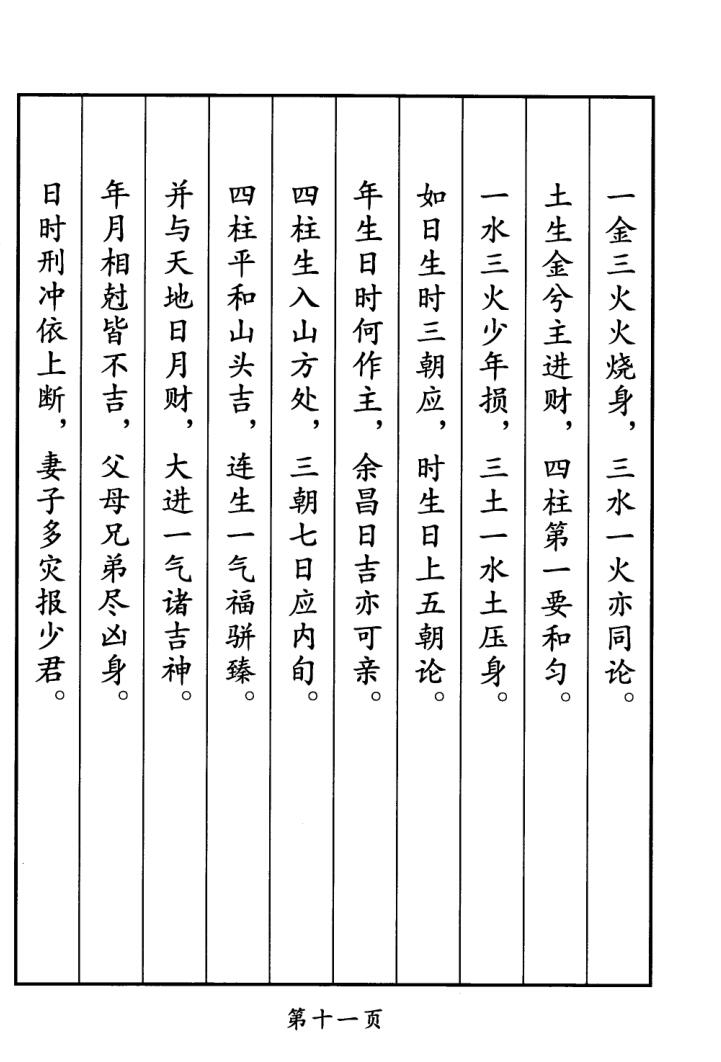 一金三火火烧身，三水一火亦同论。
土生金兮主进财，四柱第一要和匀。
一水三火少年损，三土一水土压身。
如日生时三朝应，时生日上五朝论。
年生日时何作主，余昌日吉亦可亲。
四柱生入山方处，三朝七日应内旬。
四柱平和山头吉，连生一气福骈臻。
并与天地日月财，大进一气诸吉神。
年月相尅皆不吉，父母兄弟尽凶身。
日时刑冲依上断，妻子多灾报少君。
第十一页